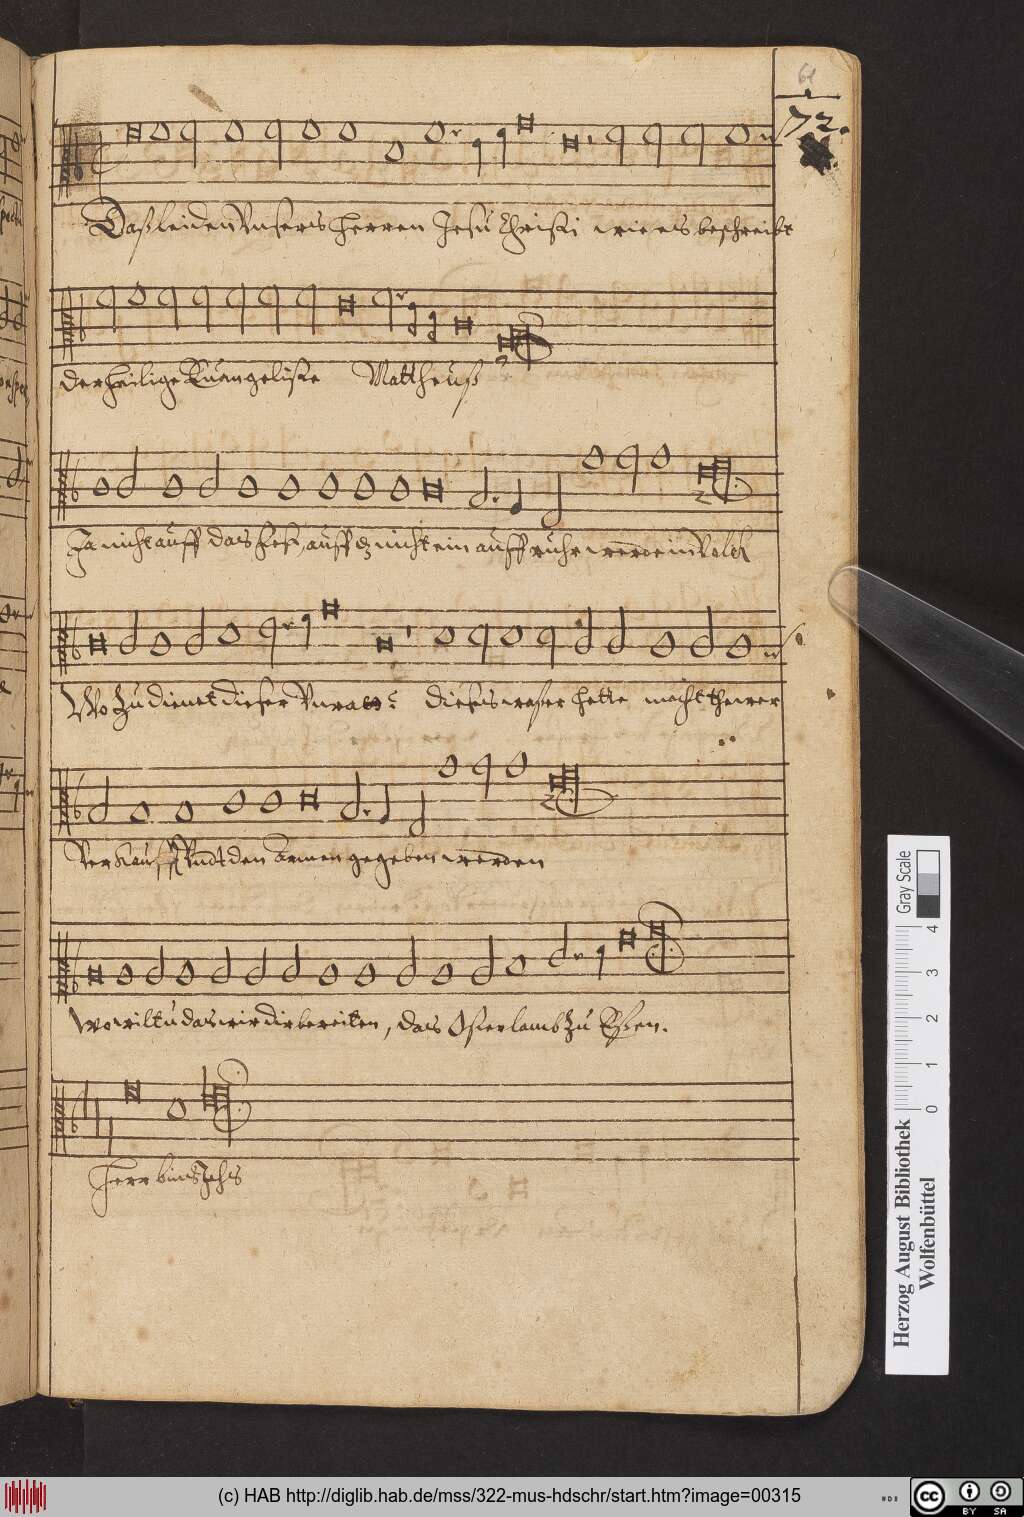 61
72.
Daß leiden Unsers herren Jesu Christi wie es beschreibt
der heilige Euangeliste Mattheuß
Ja nicht auff das fest, auff dz nicht ein auffruhr werde im Volck
Wo Zu dienet dieser Vnrath? dieses waßer hette mocht thewer
Verkaufft Vndt den armen gegeben werden
Wo wiltu das wir dir bereiten, das Osterlamb Zu Eßen.
Herr bin Ichs
Herzog August Bibliothek
Wolfenbüttel
Gray Scale
0 1 2 3 4
(c) HAB http://diglib.hab.de/mss/322-mus-hdschr/start.htm?image=00315
HAB
cc BY SA